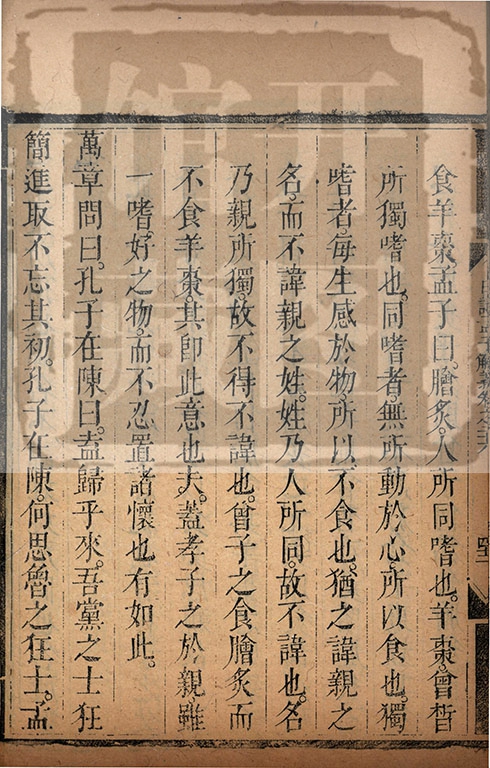 食羊棗孟子曰。膾炙。人所同嗜也。羊棗。曾皙
所獨嗜也。同嗜者。無所動於心。所以食也。獨
嗜者。每生感於物。所以不食也。猶之諱親之
名。而不諱親之姓。姓乃人所同。故不諱也。名
乃親所獨。故不得不諱也。曾子之食膾炙而
不食羊棗。其卽此意也夫。蓋孝子之於親。雖
一嗜好之物。而不忍置諸懷也有如此。
萬章問曰。孔子在陳曰。盍歸乎來。吾黨之士狂
簡進取不忘其初。孔子在陳。何思魯之狂士。孟